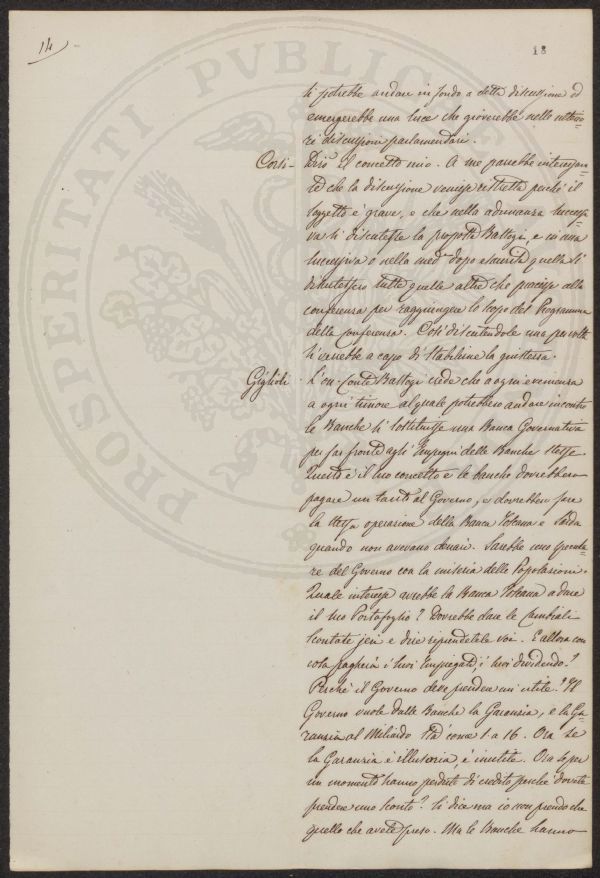 14)
18
PROSPERITATI PVBLICAE
si potrebbe andare in fondo a detta discussione ed
emergerebbe una luce che gioverebbe nelle ulterio=
ri discussioni parlamentari.
Corsi - Dirò il concetto mio. A me parrebbe interessan=
te che la discussione venisse ristretta perché il
soggetto è grave, e che nella adunanza successi=
va si discutesse la proposta Bastogi, e in una
successiva o nella med.ª dopo esaurita quella si
discutessero tutte quelle altre che piacesse alla
conferenza per raggiungere lo scopo del Programma
della Conferenza. Così discutendole una per volta
si verrebbe a capo di stabilirne la giustezza.
Giglioli - L'on. Conte Bastogi crede che a ogni evenienza
a ogni timore al quale potrebbero andare incontro
le Banche si sostituisse una Banca Governativa
per far fronte agli Impegni delle Banche stesse.
Questo è il suo concetto e le banche dovrebbero
pagare un tanto al Governo, e dovrebbero fare
la stessa operazione della Banca Toscana e Sarda
quando non avevano denari. Sarebbe uno specula=
re del Governo con la miseria delle Popolazioni.
Quale interesse avrebbe la Banca Toscana a dare
il suo Portafoglio? Dovrebbe dare le Cambiali
scontate jeri e dire riprendetele voi. E allora con
cosa pagherà i suoi Impiegati, i suoi dividendo?
Perché il Governo deve prendere un utile? Il
Governo vuole dalle Banche la Garanzia, e la Ga=
ranzia al Miliardo sta come 1 a 16. Ora se
la Garanzia è illusoria, è inutile. Ora se per
un momento hanno perduto di credito perché dovete
prendere uno sconto? Si dice ma io non prendo che
quello che avete preso. Ma le Banche hanno